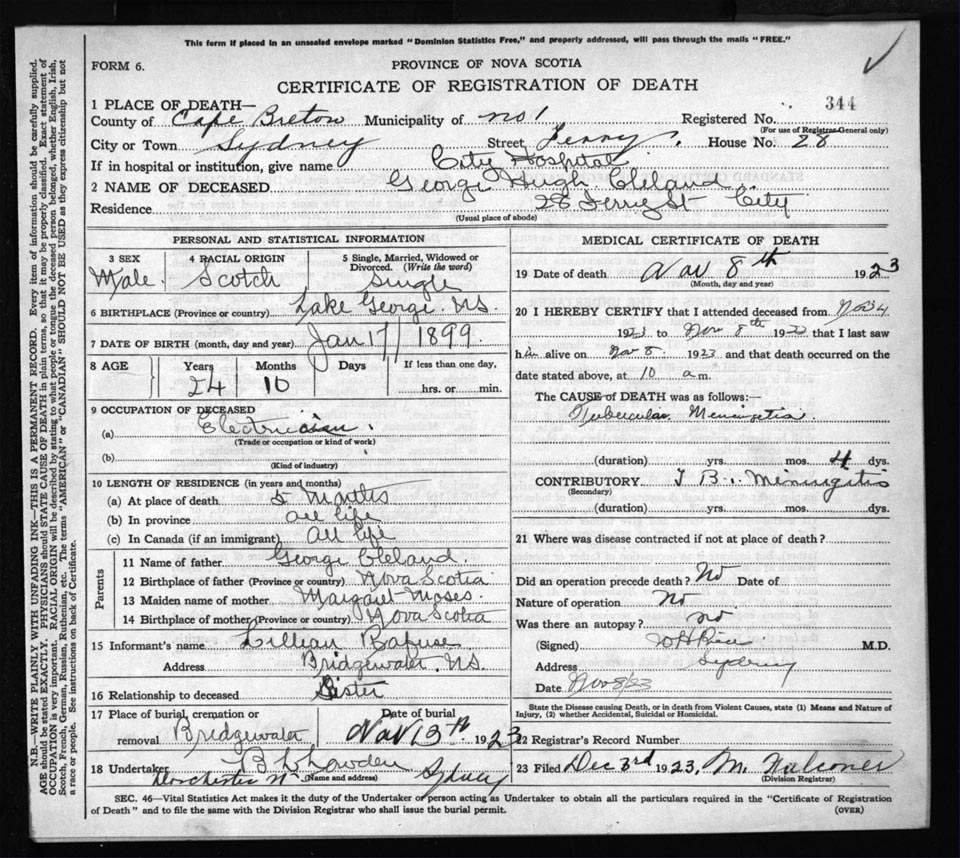 This form if placed in an unsealed envelope marked "Dominion Statistics Free," and properly addressed, will pass through the mails "FREE."
FORM 6.
PROVINCE OF NOVA SCOTIA
CERTIFICATE OF REGISTRATION OF DEATH
344
1 PLACE OF DEATH—
County of Cape Breton Municipality of No 1 Registered No.
(For use of Registrar General only)
City or Town Sydney Street Ferry House No. 28
If in hospital or institution, give name City Hospital
2 NAME OF DECEASED George Hugh Cleland
Residence 28 Ferry St City
(Usual place of abode)
PERSONAL AND STATISTICAL INFORMATION
3 SEX 4 RACIAL ORIGIN 5 Single, Married, Widowed or Divorced. (Write the word)
Male. Scotch Single
6 BIRTHPLACE (Province or country) Lake George. N.S.
7 DATE OF BIRTH (month, day and year) Jan 17 1899
8 AGE Years Months Days If less than one day,
24 10 hrs. or min.
9 OCCUPATION OF DECEASED
(a) Electrician.
(Trade or occupation or kind of work)
(b)
(Kind of industry)
10 LENGTH OF RESIDENCE (in years and months)
(a) At place of death 5 Months
(b) In province all life
(c) In Canada (if an immigrant) all life
Parents
11 Name of father George Cleland.
12 Birthplace of father (Province or country) Nova Scotia
13 Maiden name of mother Margaret Moses.
14 Birthplace of mother (Province or country) Nova Scotia
15 Informant's name Lillian Rafuse
Address Bridgewater. N.S.
16 Relationship to deceased Sister
17 Place of burial, cremation or removal Bridgewater Date of burial Nov 13th 1923
18 Undertaker
(Name and address) Sydney
MEDICAL CERTIFICATE OF DEATH
19 Date of death Nov 8th 1923
(Month, day and year)
20 I HEREBY CERTIFY that I attended deceased from Nov 4
1923 to Nov 8th 1923 that I last saw
him alive on Nov 8. 1923 and that death occurred on the
date stated above, at 10 a m.
The CAUSE of DEATH was as follows:—
Tubercular Meningitis.
(duration) yrs. mos. 4 dys.
CONTRIBUTORY T B. Meningitis
(Secondary)
(duration) yrs. mos. dys.
21 Where was disease contracted if not at place of death?
Did an operation precede death? No Date of
Nature of operation No
Was there an autopsy? No
(Signed) M.D.
Address Sydney
Date Nov 8/23
State the Disease causing Death, or in death from Violent Causes, state (1) Means and Nature of Injury, (2) whether Accidental, Suicidal or Homicidal.
22 Registrar's Record Number
23 Filed Dec 3rd 1923, M. Falconer
(Division Registrar)
SEC. 46—Vital Statistics Act makes it the duty of the Undertaker or person acting as Undertaker to obtain all the particulars required in the "Certificate of Registration
of Death" and to file the same with the Division Registrar who shall issue the burial permit. (OVER)
N.B.—WRITE PLAINLY WITH UNFADING INK—THIS IS A PERMANENT RECORD. Every item of information should be carefully supplied.
AGE should be stated EXACTLY. PHYSICIANS should STATE CAUSE OF DEATH in plain terms, so that it may be properly classified. Exact statement of
OCCUPATION is very important. RACIAL ORIGIN will be described by stating to what people or tongue the deceased person belonged, whether English, Irish,
Scotch, French, German, Russian, Ruthenian, etc. The terms "AMERICAN" or "CANADIAN" SHOULD NOT BE USED as they express citizenship but not
a race or people. See instructions on back of Certificate.